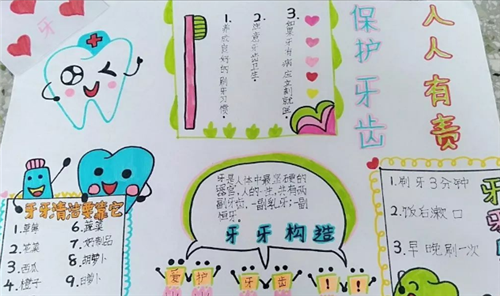 牙
1.养成良好的刷牙习惯。
2.注意牙齿卫生。
3.如果牙有病应立刻就医
保护牙齿
人人有责
牙牙清洁要靠它
1.草莓
2.芹菜
3.西瓜
4.橙子
6.蔬菜
7.奶制品
8.胡萝卜
9.白萝卜
牙是人体中最坚硬的
器官,人的一生,共有两
副牙齿,一副乳牙;一副
恒牙。
牙牙构造
爱护牙齿!!
1.刷牙3分钟
2.饭后漱口
3.早晚刷一次